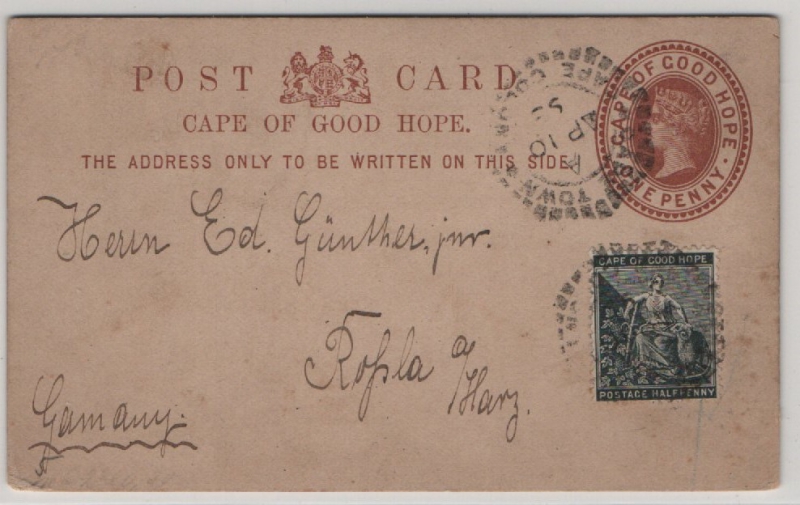 POST CARD
CAPE OF GOOD HOPE.
THE ADDRESS ONLY TO BE WRITTEN ON THIS SIDE.
CAPE OF GOOD HOPE
ONE PENNY
CAPE
TOWN
AP 10
Herrn Ed. Günther, jnr.
Roßla a/Harz.
Gamany.
CAPE OF GOOD HOPE
POSTAGE HALFPENNY